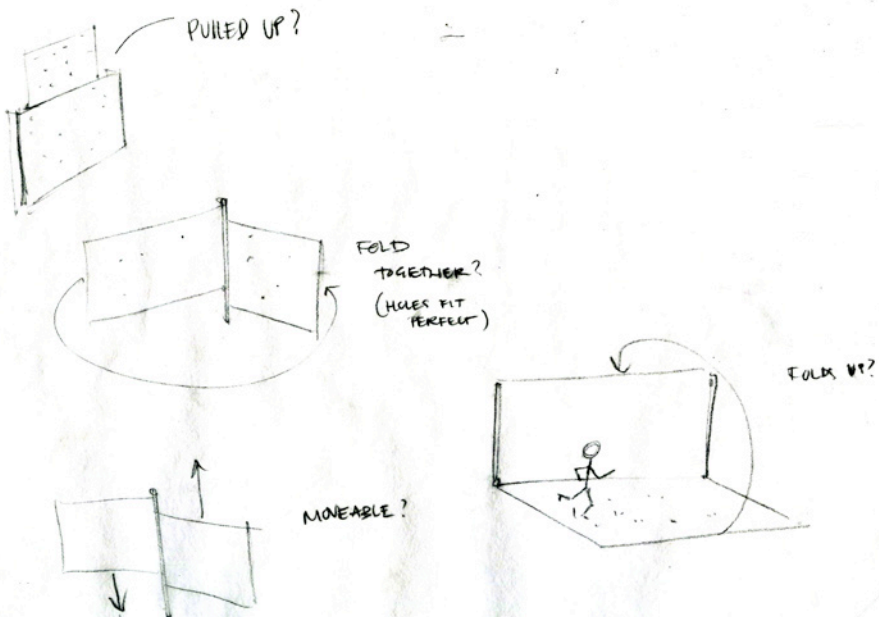 PULLED UP?
FOLD
TOGETHER?
(HOLES FIT
PERFECT)
FOLDS UP?
MOVEABLE?